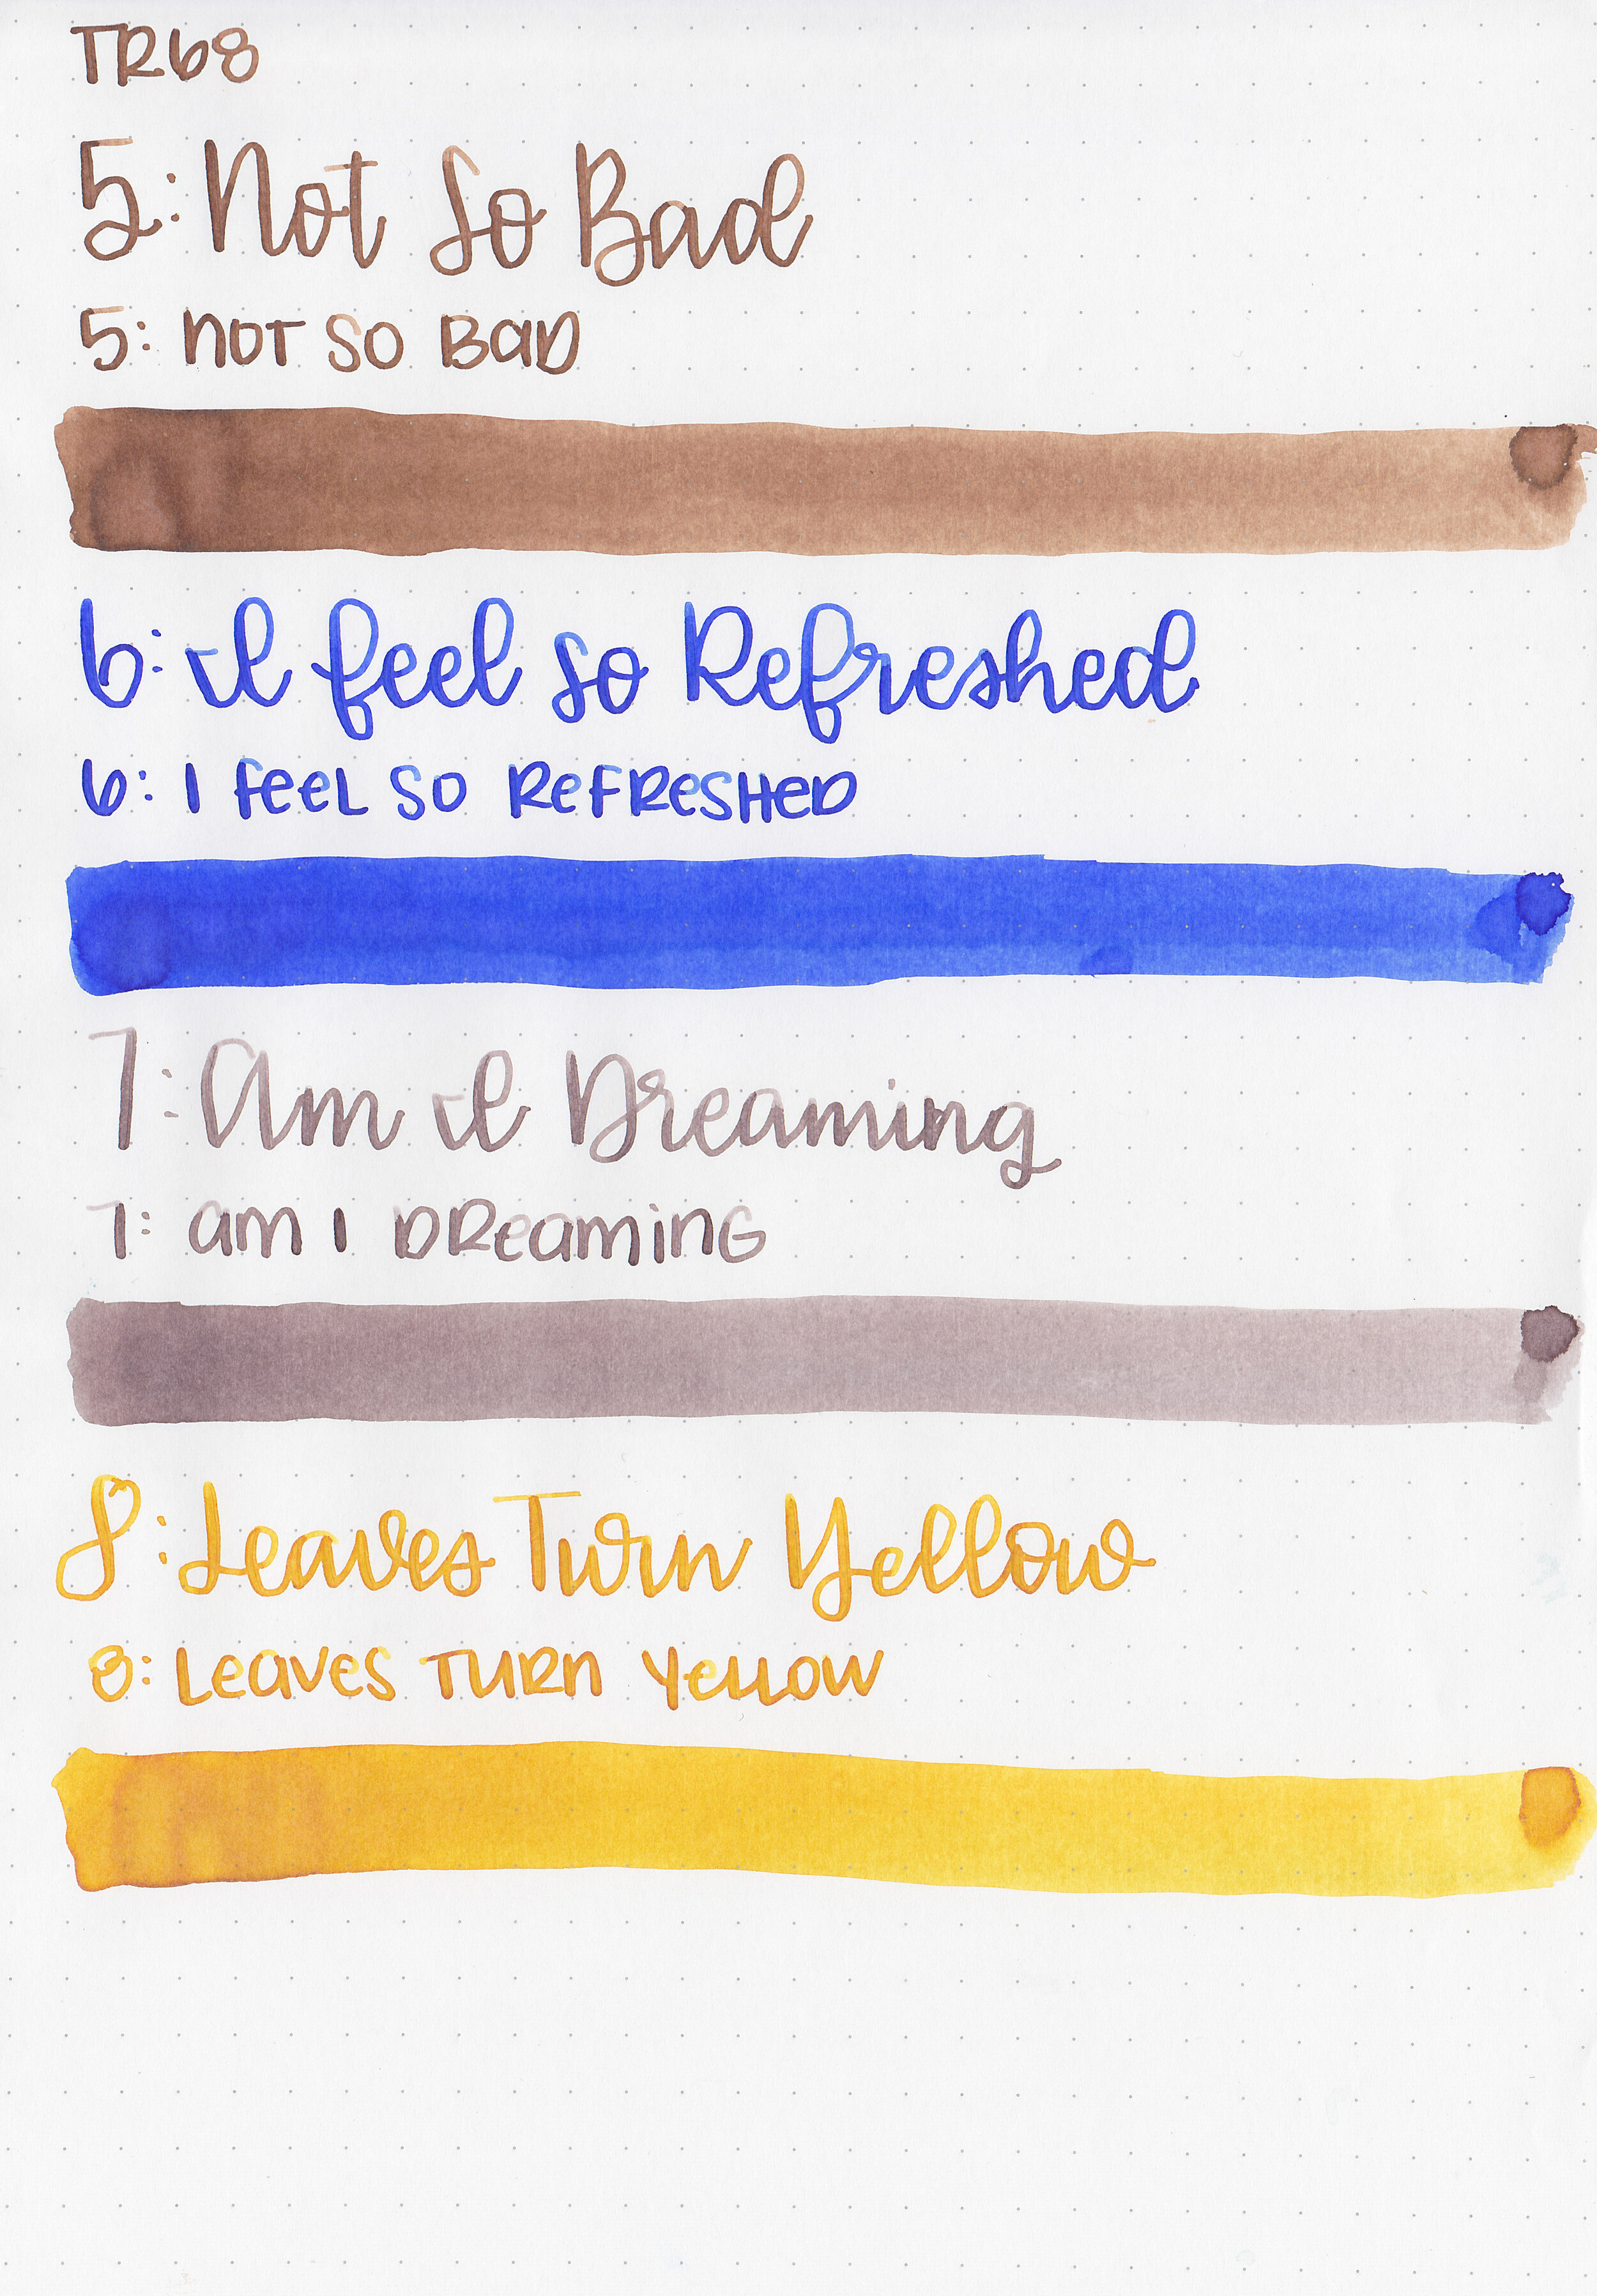 TR68
5: Not So Bad
5: NOT SO BAD
6: I feel so Refreshed
6: I FEEL SO REFRESHED
7: Am I Dreaming
7: AM I DREAMING
8: Leaves Turn Yellow
8: LEAVES TURN YELLOW